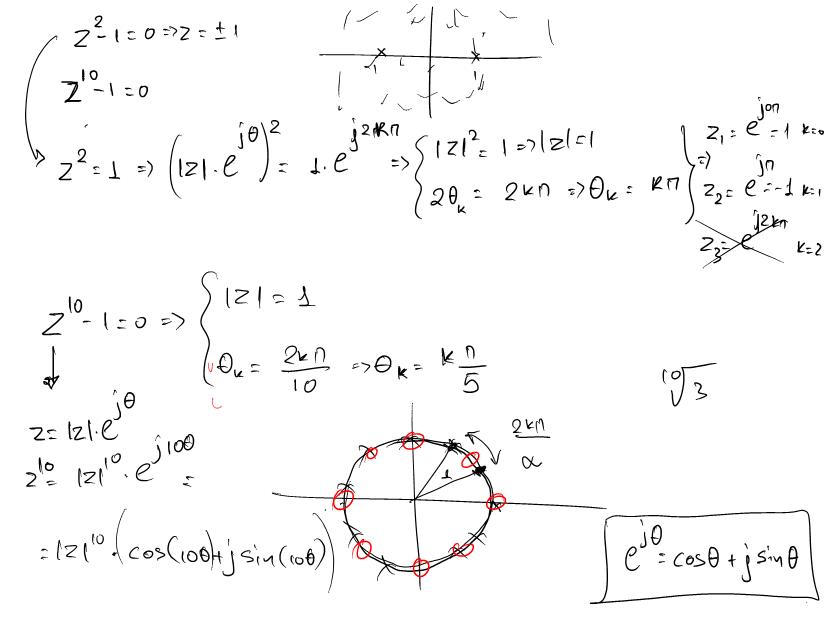 z² - 1 = 0 => z = ± 1
z¹⁰ - 1 = 0
-1
z² = 1 => (|z| · e^{jθ})² = 1 · e^{j2kπ} => { |z|² = 1 => |z| = 1
2θₖ = 2kπ => θₖ = kπ } =>
z₁ = e^{j0π} = 1 k=0
z₂ = e^{jπ} = -1 k=1
z₃ = e^{j2kπ} k=2
z¹⁰ - 1 = 0 => { |z| = 1
θₖ = 2kπ/10 => θₖ = k π/5
¹⁰√3
z = |z| · e^{jθ}
z¹⁰ = |z|¹⁰ · e^{j10θ} =
= |z|¹⁰ · (cos(10θ) + j sin(10θ))
1
2kπ/α
e^{jθ} = cosθ + j sinθ